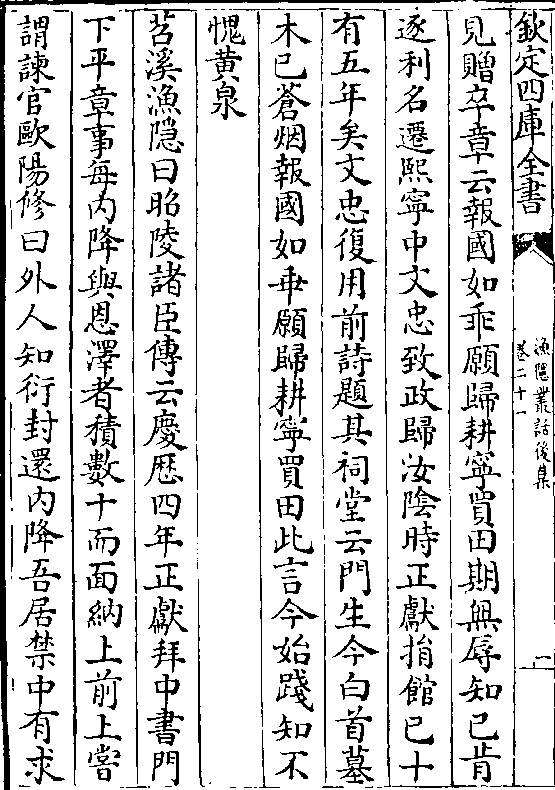 欽定四庫全書
漁隱叢話後集
卷二十一
一
見贈卒章云報國如乖願歸耕寧買田期無辱知已肯
逐利名遷熙寧中文忠致政歸汝陰時正獻捐館已十
有五年矣文忠復用前詩題其祠堂云門生今白首墓
木已蒼烟報國如乖願歸耕寧買田此言今始踐知不
愧黄泉
苕溪漁隱曰昭陵諸臣傳云慶歴四年正獻拜中書門
下平章事每内降與恩澤者積數十而面納上前上嘗
謂諫官歐陽修曰外人知衍封還内降吾居禁中有求